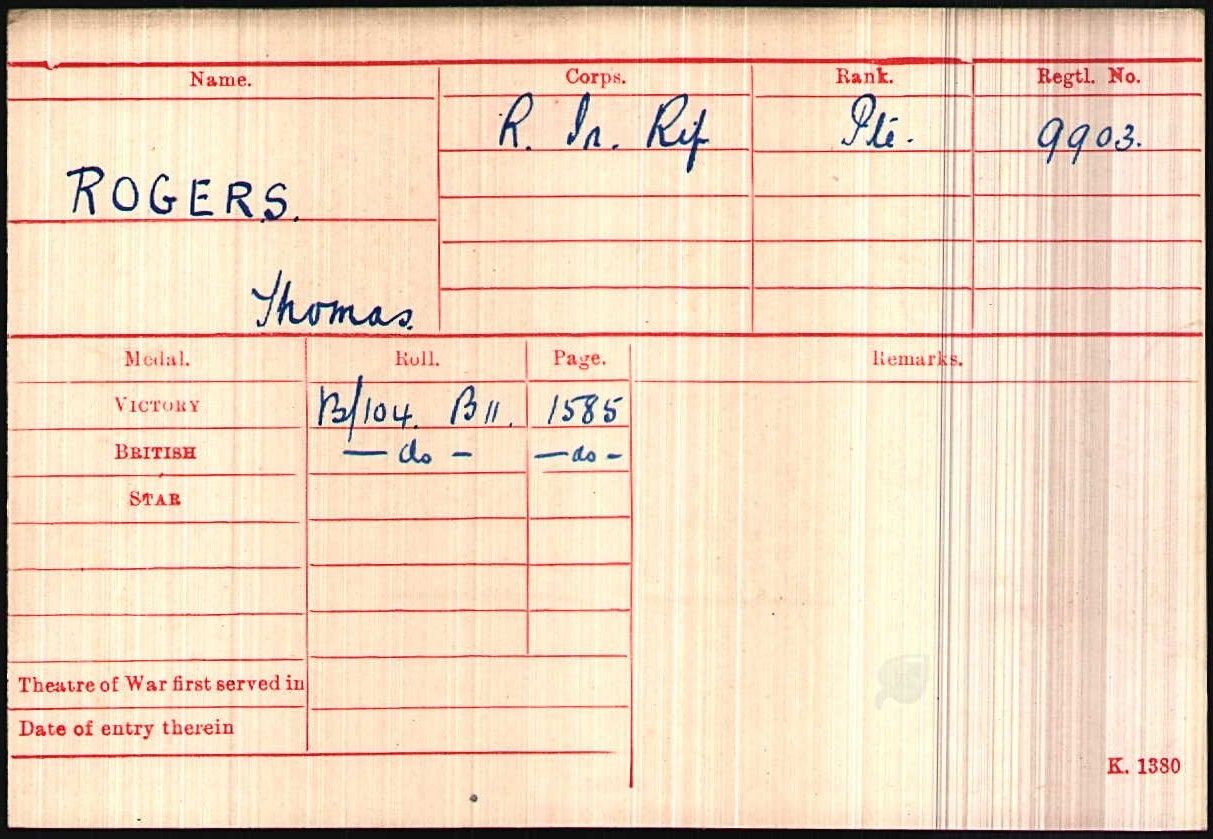 Name. Corps. Rank. Regtl. No.
R. Ir. Rif Pte. 9903.
ROGERS.
Thomas.
Medal. Roll. Page. Remarks.
VICTORY B/104. B11. 1585
BRITISH — do — — do —
STAR
Theatre of War first served in
Date of entry therein
K. 1380